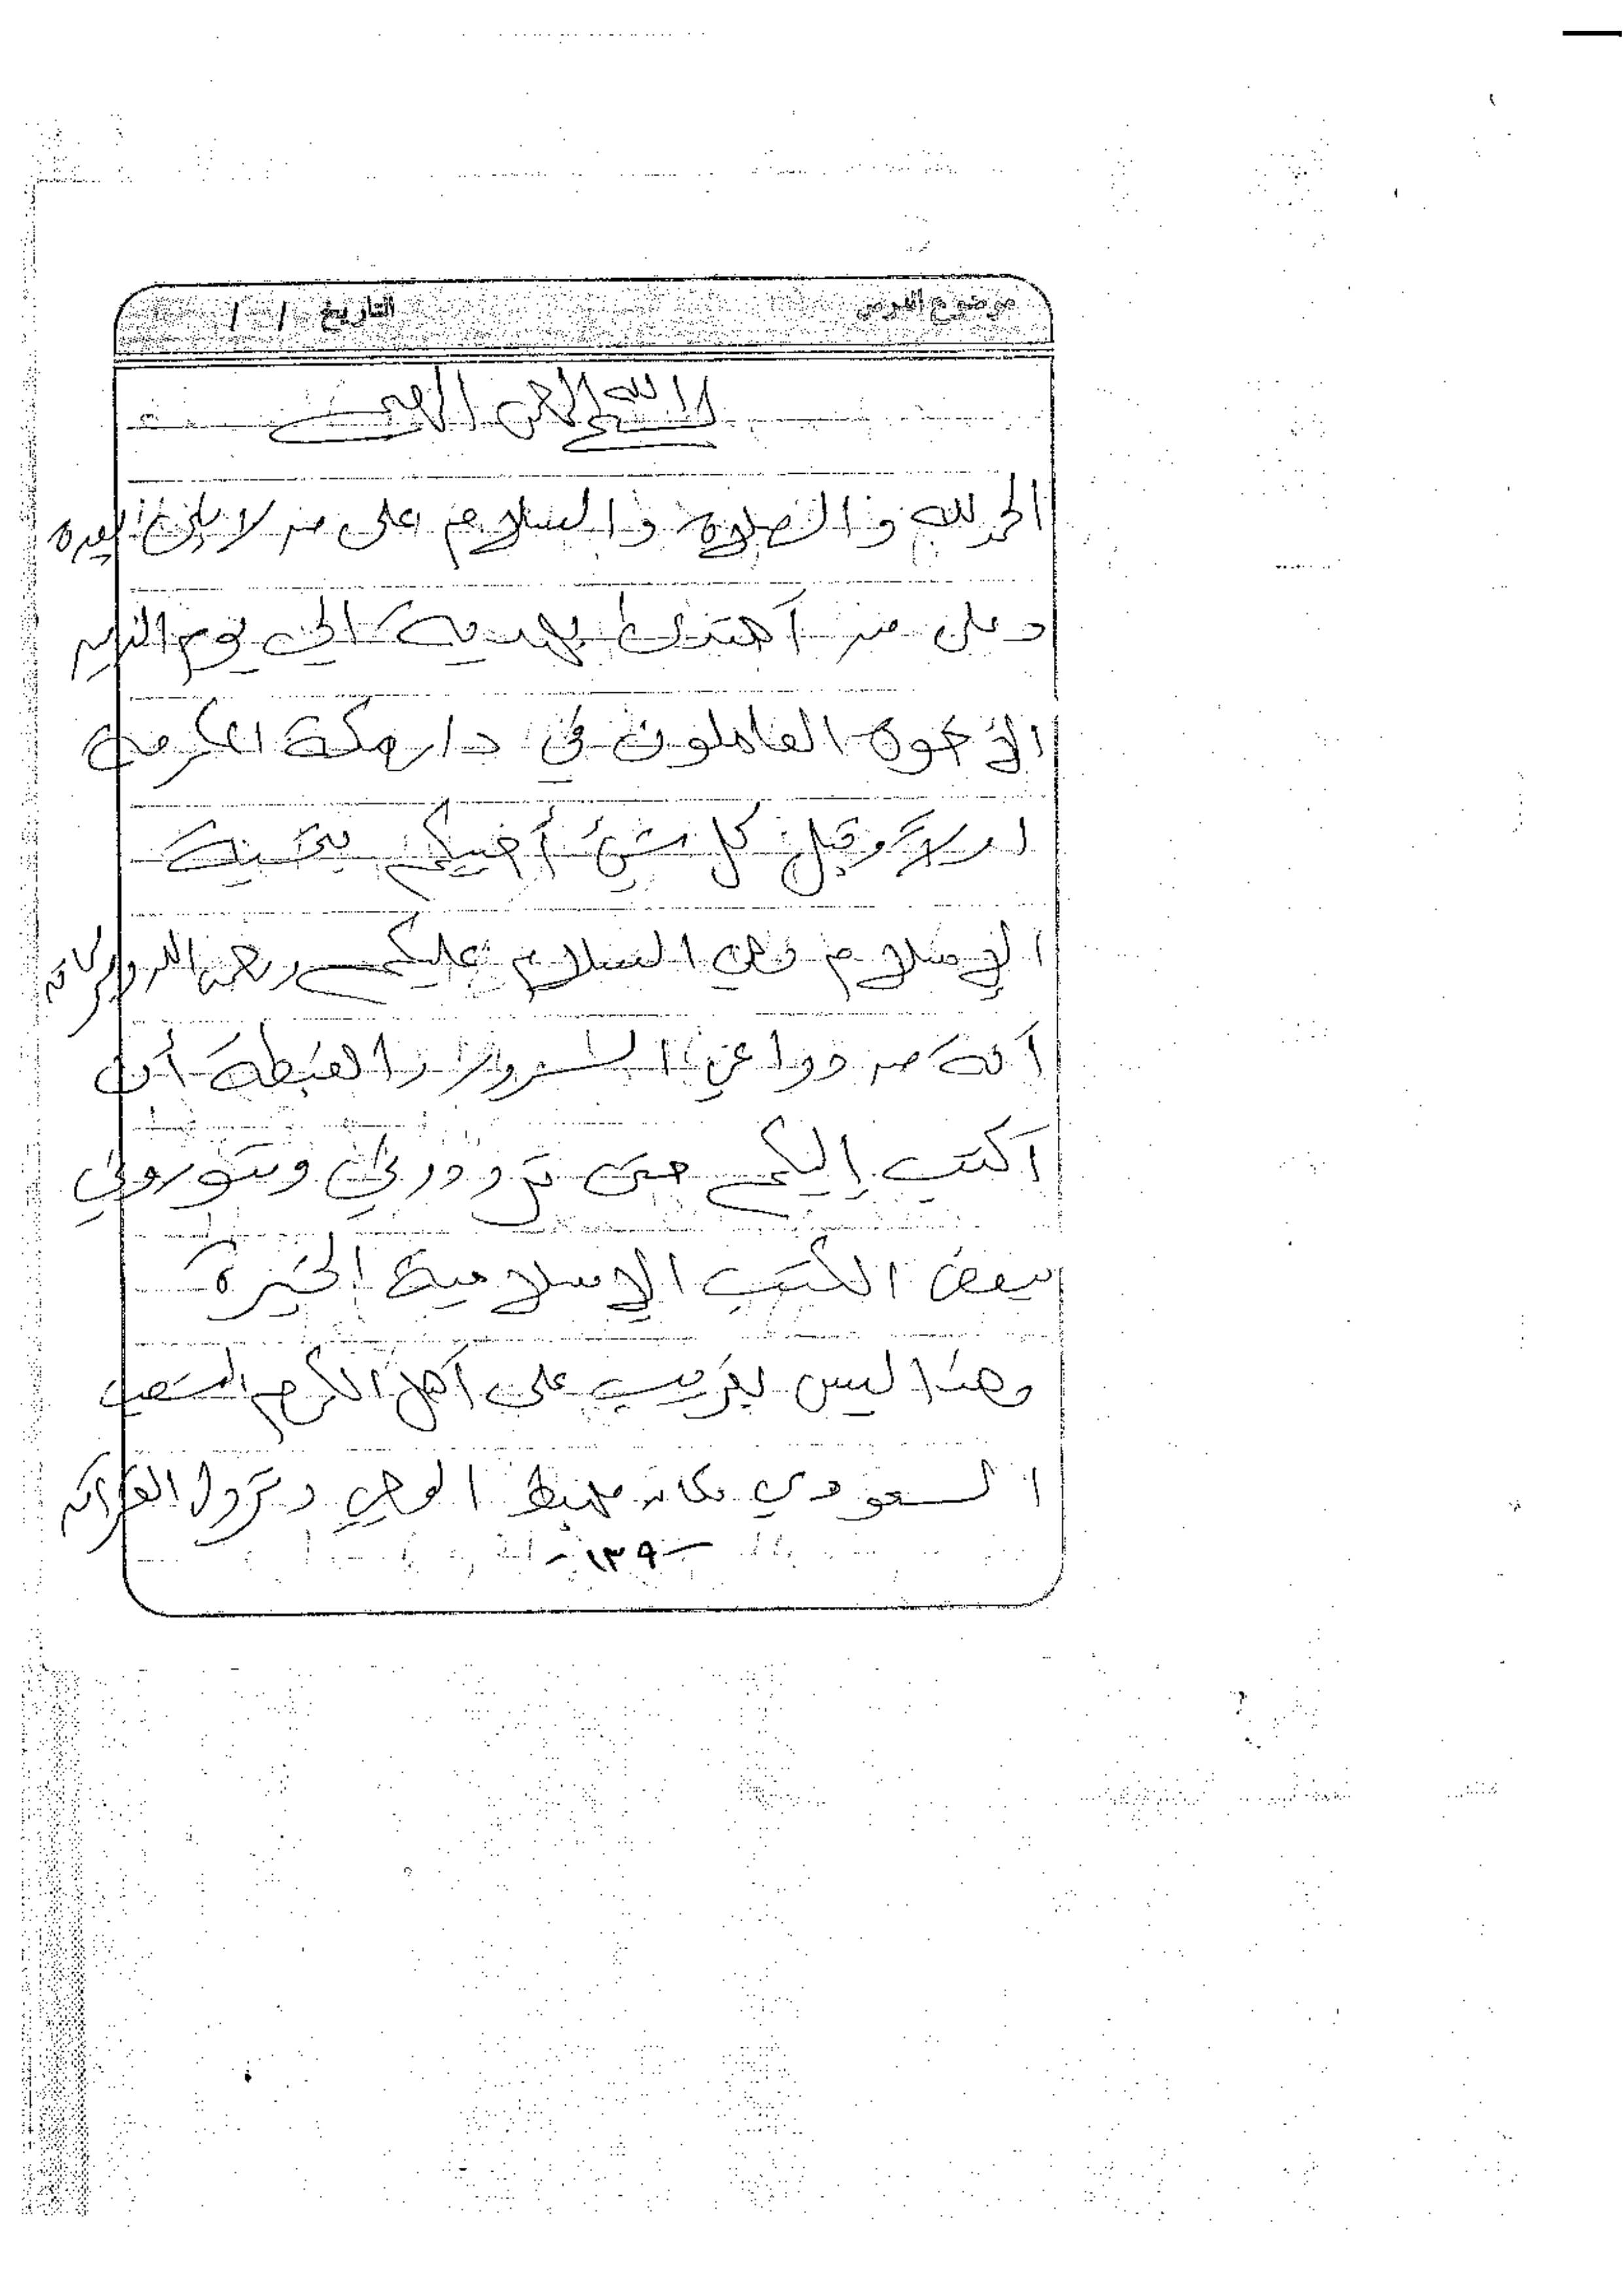 موضوع الدرس التاريخ / /
بسم الله الرحمن الرحيم
الحمد لله والصلاة والسلام على من لا نبي بعده
وعلى من آهتدى بهديه الى يوم الدين
الإخوة العاملون في دار مكة المكرمة
اولاً وقبل كل شيئ أحييكم بتحية
الإسلام وهي السلام عليكم ورحمة الله وبركاته
آنة من دواعي السرور والغبطة أن
آكتب إليكم حتى تزودوني وتنوروني
ببعض الكتب الإسلامية الخيرة
وهذا ليس بغريب على آهل الكرم الشعب
السعودي مكان مهبط الوحي ونزول القرآن
- ١٣٩ -